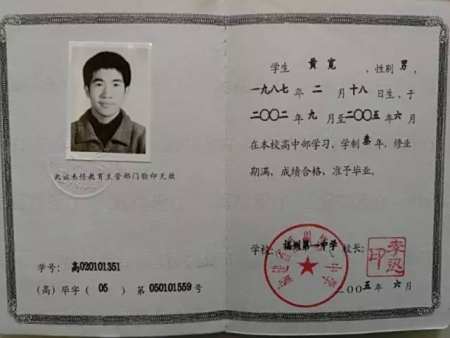 此证未经教育主管部门验印无效
学号：高020101351
（高）毕字（05）第 050101559号
学生 黄宽 ，性别 男，
一九八七年 二 月 十八 日生，于
二〇〇二年 九 月至二〇〇五年 六月
在本校高中部学习，学制叁年，修业
期满，成绩合格，准予毕业。
学校：福州第一中学 校长：
李迅印
二〇〇五年 六月